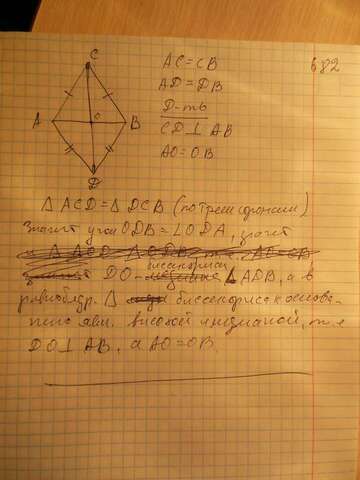 C
AC=CB
682
AD=DB
Д-ть
CD⊥AB
A
O
B
AO=OB
D
Δ ACD=Δ DCB (по трем сторонам)
Значит угол ODB=∠ODA, значит
биссектриса
DO- Δ ADB, а в
равнобедр. Δ биссектриса к основа-
нию явл. высотой и медианой, т.е
DO⊥AB, а AO=OB.